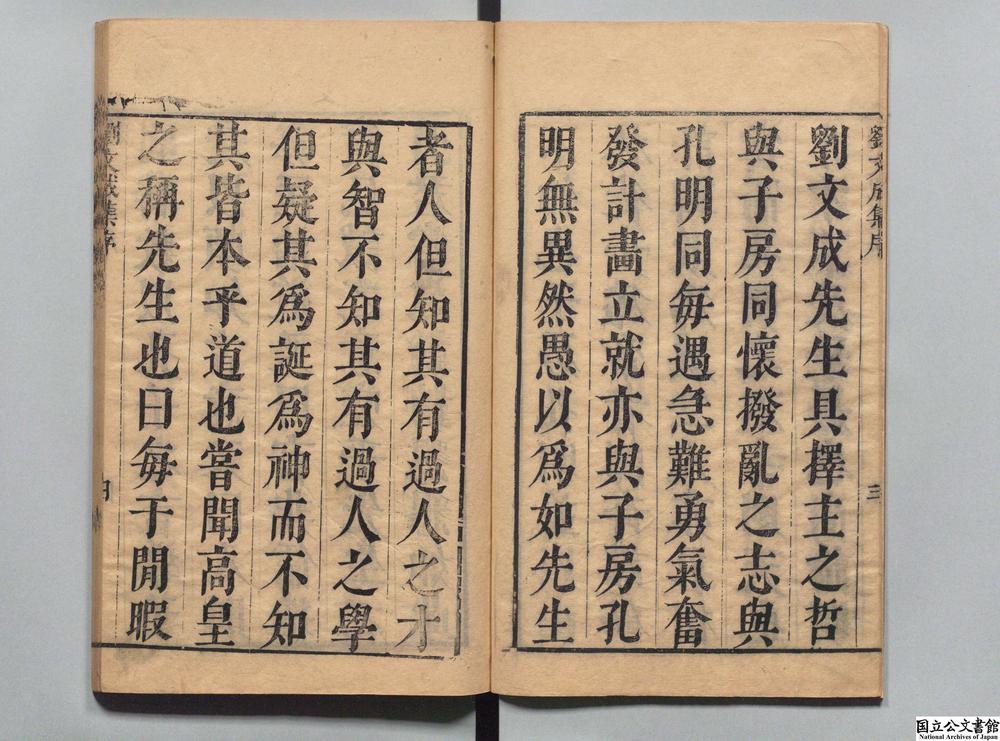 劉文成集序
三
劉文成先生具擇主之哲
與子房同懷撥亂之志與
孔明同每遇急難勇氣奮
發計畵立就亦與子房孔
明無異然愚以爲如先生
者人但知其有過人之才
與智不知其有過人之學
但疑其爲誕爲神而不知
其皆本乎道也嘗聞高皇
之稱先生也曰每于閒暇
劉文成集序
国立公文書館
National Archives of Japan